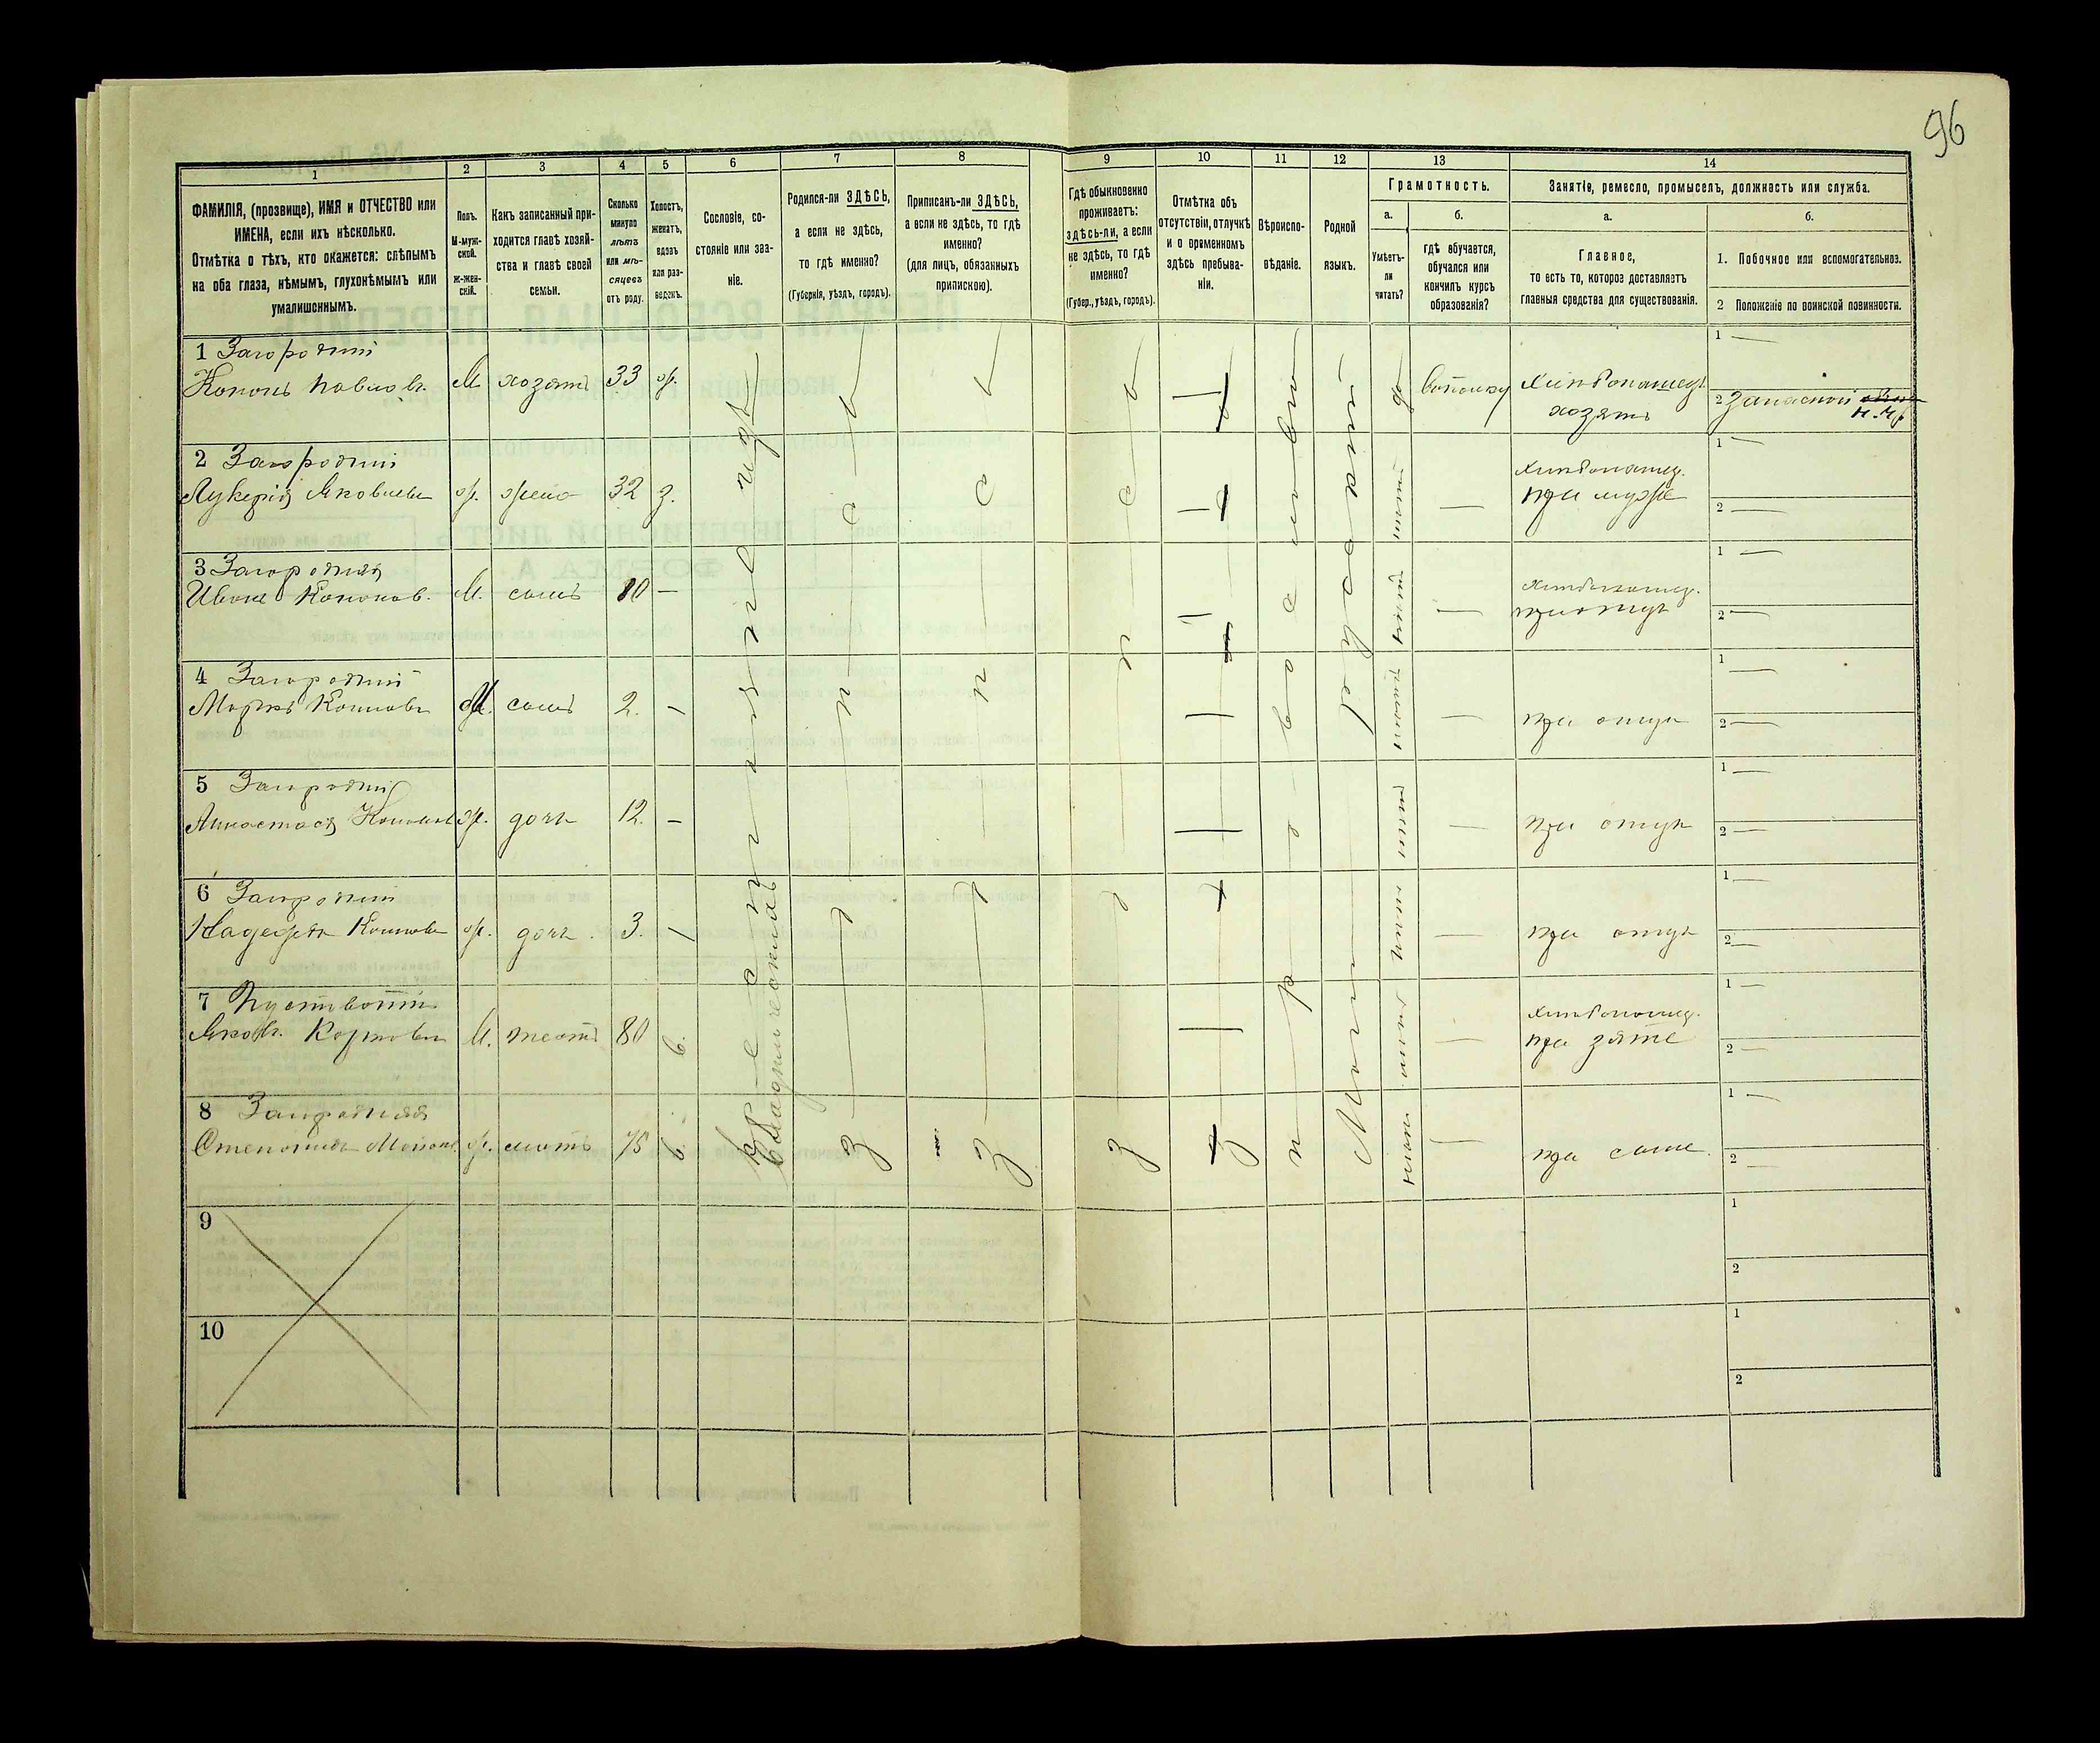 96
1
2
3
4
5
6
7
8
9
10
11
12
13
14
ФАМИЛІЯ, (прозвище), ИМЯ и ОТЧЕСТВО или
ИМЕНА, если ихъ нѣсколько.
Отмѣтка о тѣхъ, кто окажется: слѣпымъ
на оба глаза, нѣмымъ, глухонѣмымъ или
умалишоннымъ.
Полъ.
М-муж-
ской.
Ж-жен-
скій.
Какъ записанный при-
ходится главѣ хозяй-
ства и главѣ своей
семьи.
Сколько
минуло
лѣтъ
или мѣ-
сяцевъ
отъ роду.
Холостъ,
женатъ,
вдовъ
или раз-
веденъ.
Сословіе, со-
стояніе или зва-
ніе.
Родился-ли ЗДѢСЬ,
а если не здѣсь,
то гдѣ именно?
(Губернія, уѣздъ, городъ).
Приписанъ-ли ЗДѢСЬ,
а если не здѣсь, то гдѣ
именно?
(для лицъ, обязанныхъ
припискою).
Гдѣ обыкновенно
проживаетъ:
здѣсь-ли, а если
не здѣсь, то гдѣ
именно?
(Губер., уѣздъ, городъ).
Отмѣтка объ
отсутствіи, отлучкѣ
и о временномъ
здѣсь пребыва-
ніи.
Вѣроиспо-
вѣданіе.
Родной
языкъ.
Грамотность.
а.
б.
Умѣетъ-
ли
читать?
гдѣ обучается,
обучался или
кончилъ курсъ
образованія?
Занятіе, ремесло, промыселъ, должность или служба.
а.
б.
Главное,
то есть то, которое доставляетъ
главныя средства для существованія.
1. Побочное или вспомогательное.
2 Положеніе по воинской повинности.
1 Загородній
Кононъ Павловъ.
М
хозяинъ
33
ж.
да
вполку
Хлѣбопашец.
хозяинъ
1
2 Запасной
2 Загородній
Лукерія Яковлевн
ж.
жена
32
з.
нѣтъ
Хлѣбопашец.
при мужѣ
1
2
3 Загородняя
Иване Кононов.
М.
сынъ
10
нѣтъ
Хлѣбопашец.
при отцѣ
1
2
4 Загородній
Маркъ Кононовъ
М.
сынъ
2.
при отцѣ
1
2
5 Загородній
Анастасія Кононов
ж.
дочь
12.
нѣтъ
при отцѣ
1
2
6 Загородній
Надежда Кононовн
ж.
дочь
3.
нѣтъ
при отцѣ
1
2
7
Яковъ. Карповъ
М.
тесть
80
в.
нѣтъ
Хлѣбопашец.
при зяте
1
2
8 Загородняя
Степонида
ж.
мать
75
в.
нѣтъ
при сыне.
1
2
Крестьянинъ изъ
владельческихъ
Здѣсь
Здѣсь
Здѣсь
православный
Малорусскій
9
1
2
10
1
2